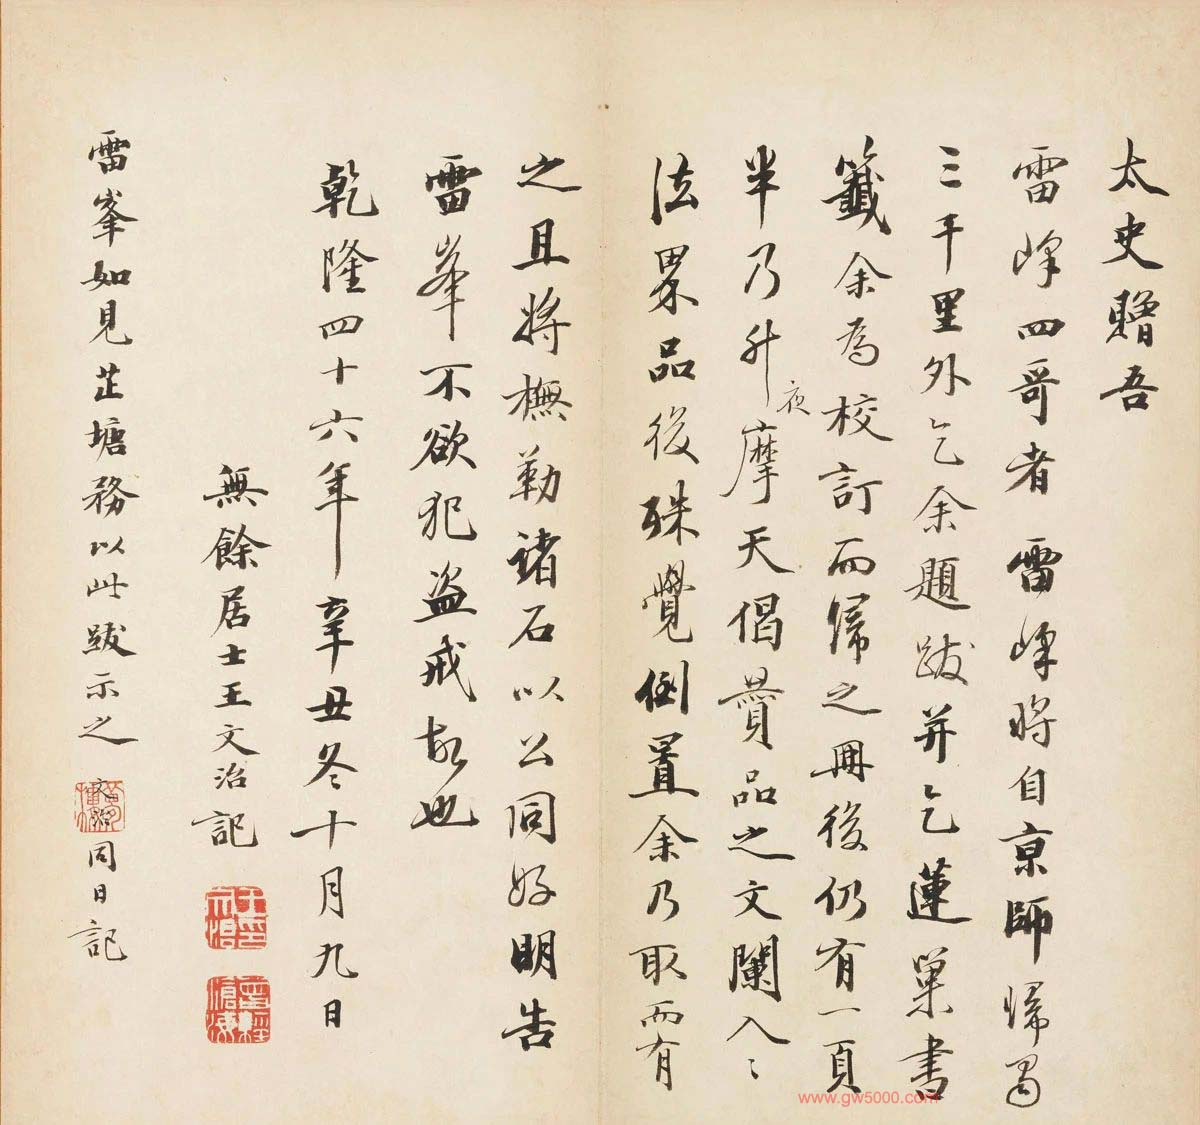 太史贈吾
雷峰四哥者雷峰將自京師歸蜀
三千里外乞余題跋并乞蓮巢書
籤余為校訂而歸之冊後仍有一頁
半乃升夜摩天偈贊品之文闌入〻
法界品後殊覺倒置余乃取而有
之且將橅勒諸石以公同好明告
雷峯不欲犯盜戒故也
乾隆四十六年辛丑冬十月九日
無餘居士王文治記
雷峯如見芷塘務以此跋示之文治同日記
www.gw5000.com